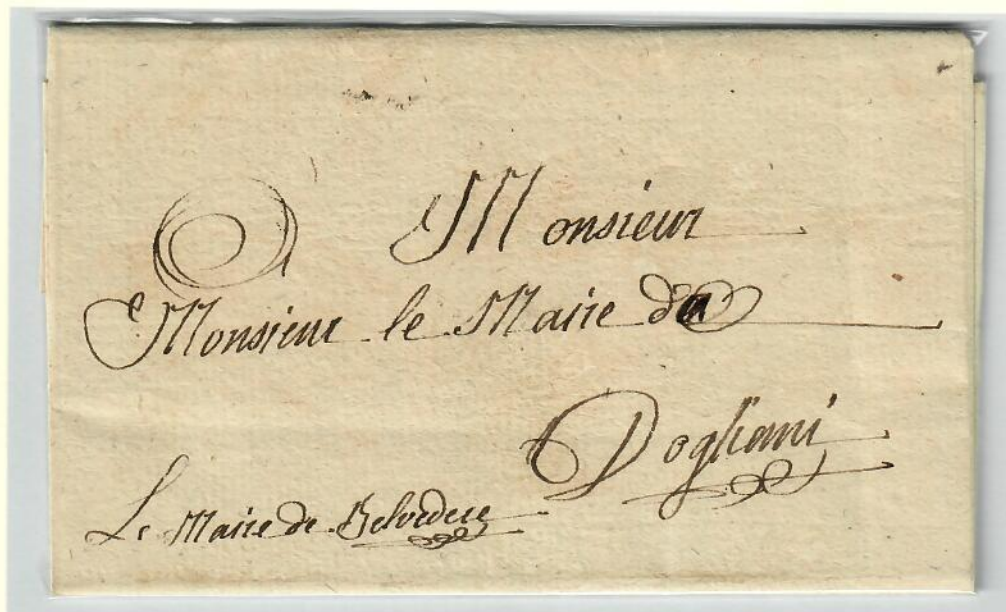 A Monsieur
Monsieur le Maire de
Dogliani
Le Maire de Belvedere